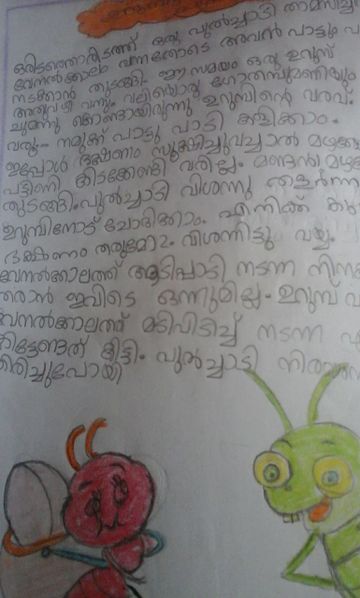 ഒരിടത്തൊരിടത്ത് ഒരു പുൽച്ചാടി താമസിച്ച
വേനൽക്കാലം വന്നതോടെ അവൻ പാട്ടും
നടക്കാൻ തുടങ്ങി. ഈ സമയം ഒരു ഉറുമ്പ്
അതുവഴി വന്നു. വലിയൊരു ഗോതമ്പുമണിയും
ചുമന്നു കൊണ്ടായിരുന്നു ഉറുമ്പിന്റെ വരവ്.
വരൂ- നമുക്ക് പാട്ടു പാടി കളിക്കാം.
ഇപ്പോൾ ഭക്ഷണം സൂക്ഷിച്ചുവച്ചാൽ
പട്ടിണി കിടക്കേണ്ടി വരില്ല.
തുടങ്ങി. പുൽച്ചാടി വിശന്നു തളർന്ന
ഉറുമ്പിനോട് ചോദിക്കാം. എനിക്ക്
ഭക്ഷണം തരുമോ? വിശന്നിട്ടു വയ്യ.
വേനൽക്കാലത്ത് ആടിപ്പാടി നടന്ന
തരാൻ ഇവിടെ ഒന്നുമില്ല. ഉറുമ്പ്
വേനൽക്കാലത്ത് മടിപിടിച്ച് നടന്ന
കിട്ടേണ്ടത് കിട്ടി. പുൽച്ചാടി
തിരിച്ചുപോയി